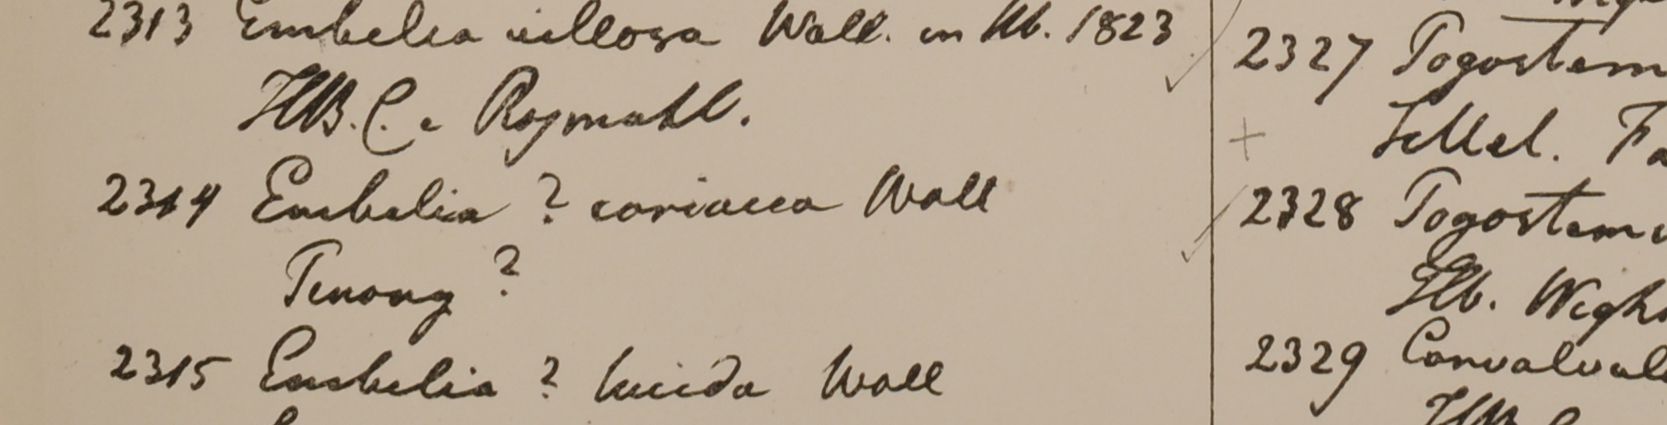 2313 Embelia villosa Wall. in Hb. 1823
HB.C. e Rajmahl.
2314 Embelia ? coriacea Wall
Penang ?
2315 Embelia ? lucida Wall
2327 Pogostem
+ Silhet. Fa
2328 Pogostem
Hb. Wight
2329 Convolvul
HB C